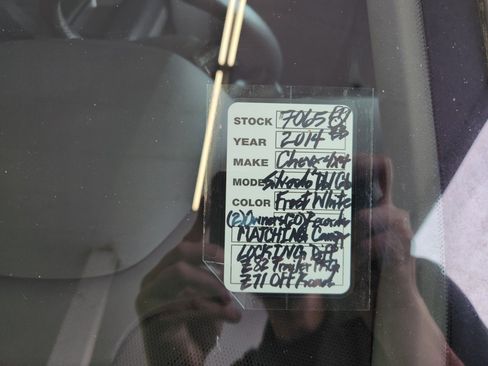 STOCK 7065
YEAR 2014
MAKE Chevrolet
MODEL Silverado Dbl Cab
COLOR Frost White
(2) Owners (20) Records
MATCHING Camper
LOCKING Diff
Z82 Trailer Pkg
Z71 Off Road